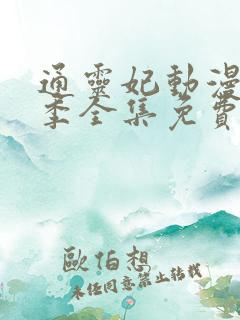 通靈妃動漫
季全集免費
歐伯想
未任同意禁止转载